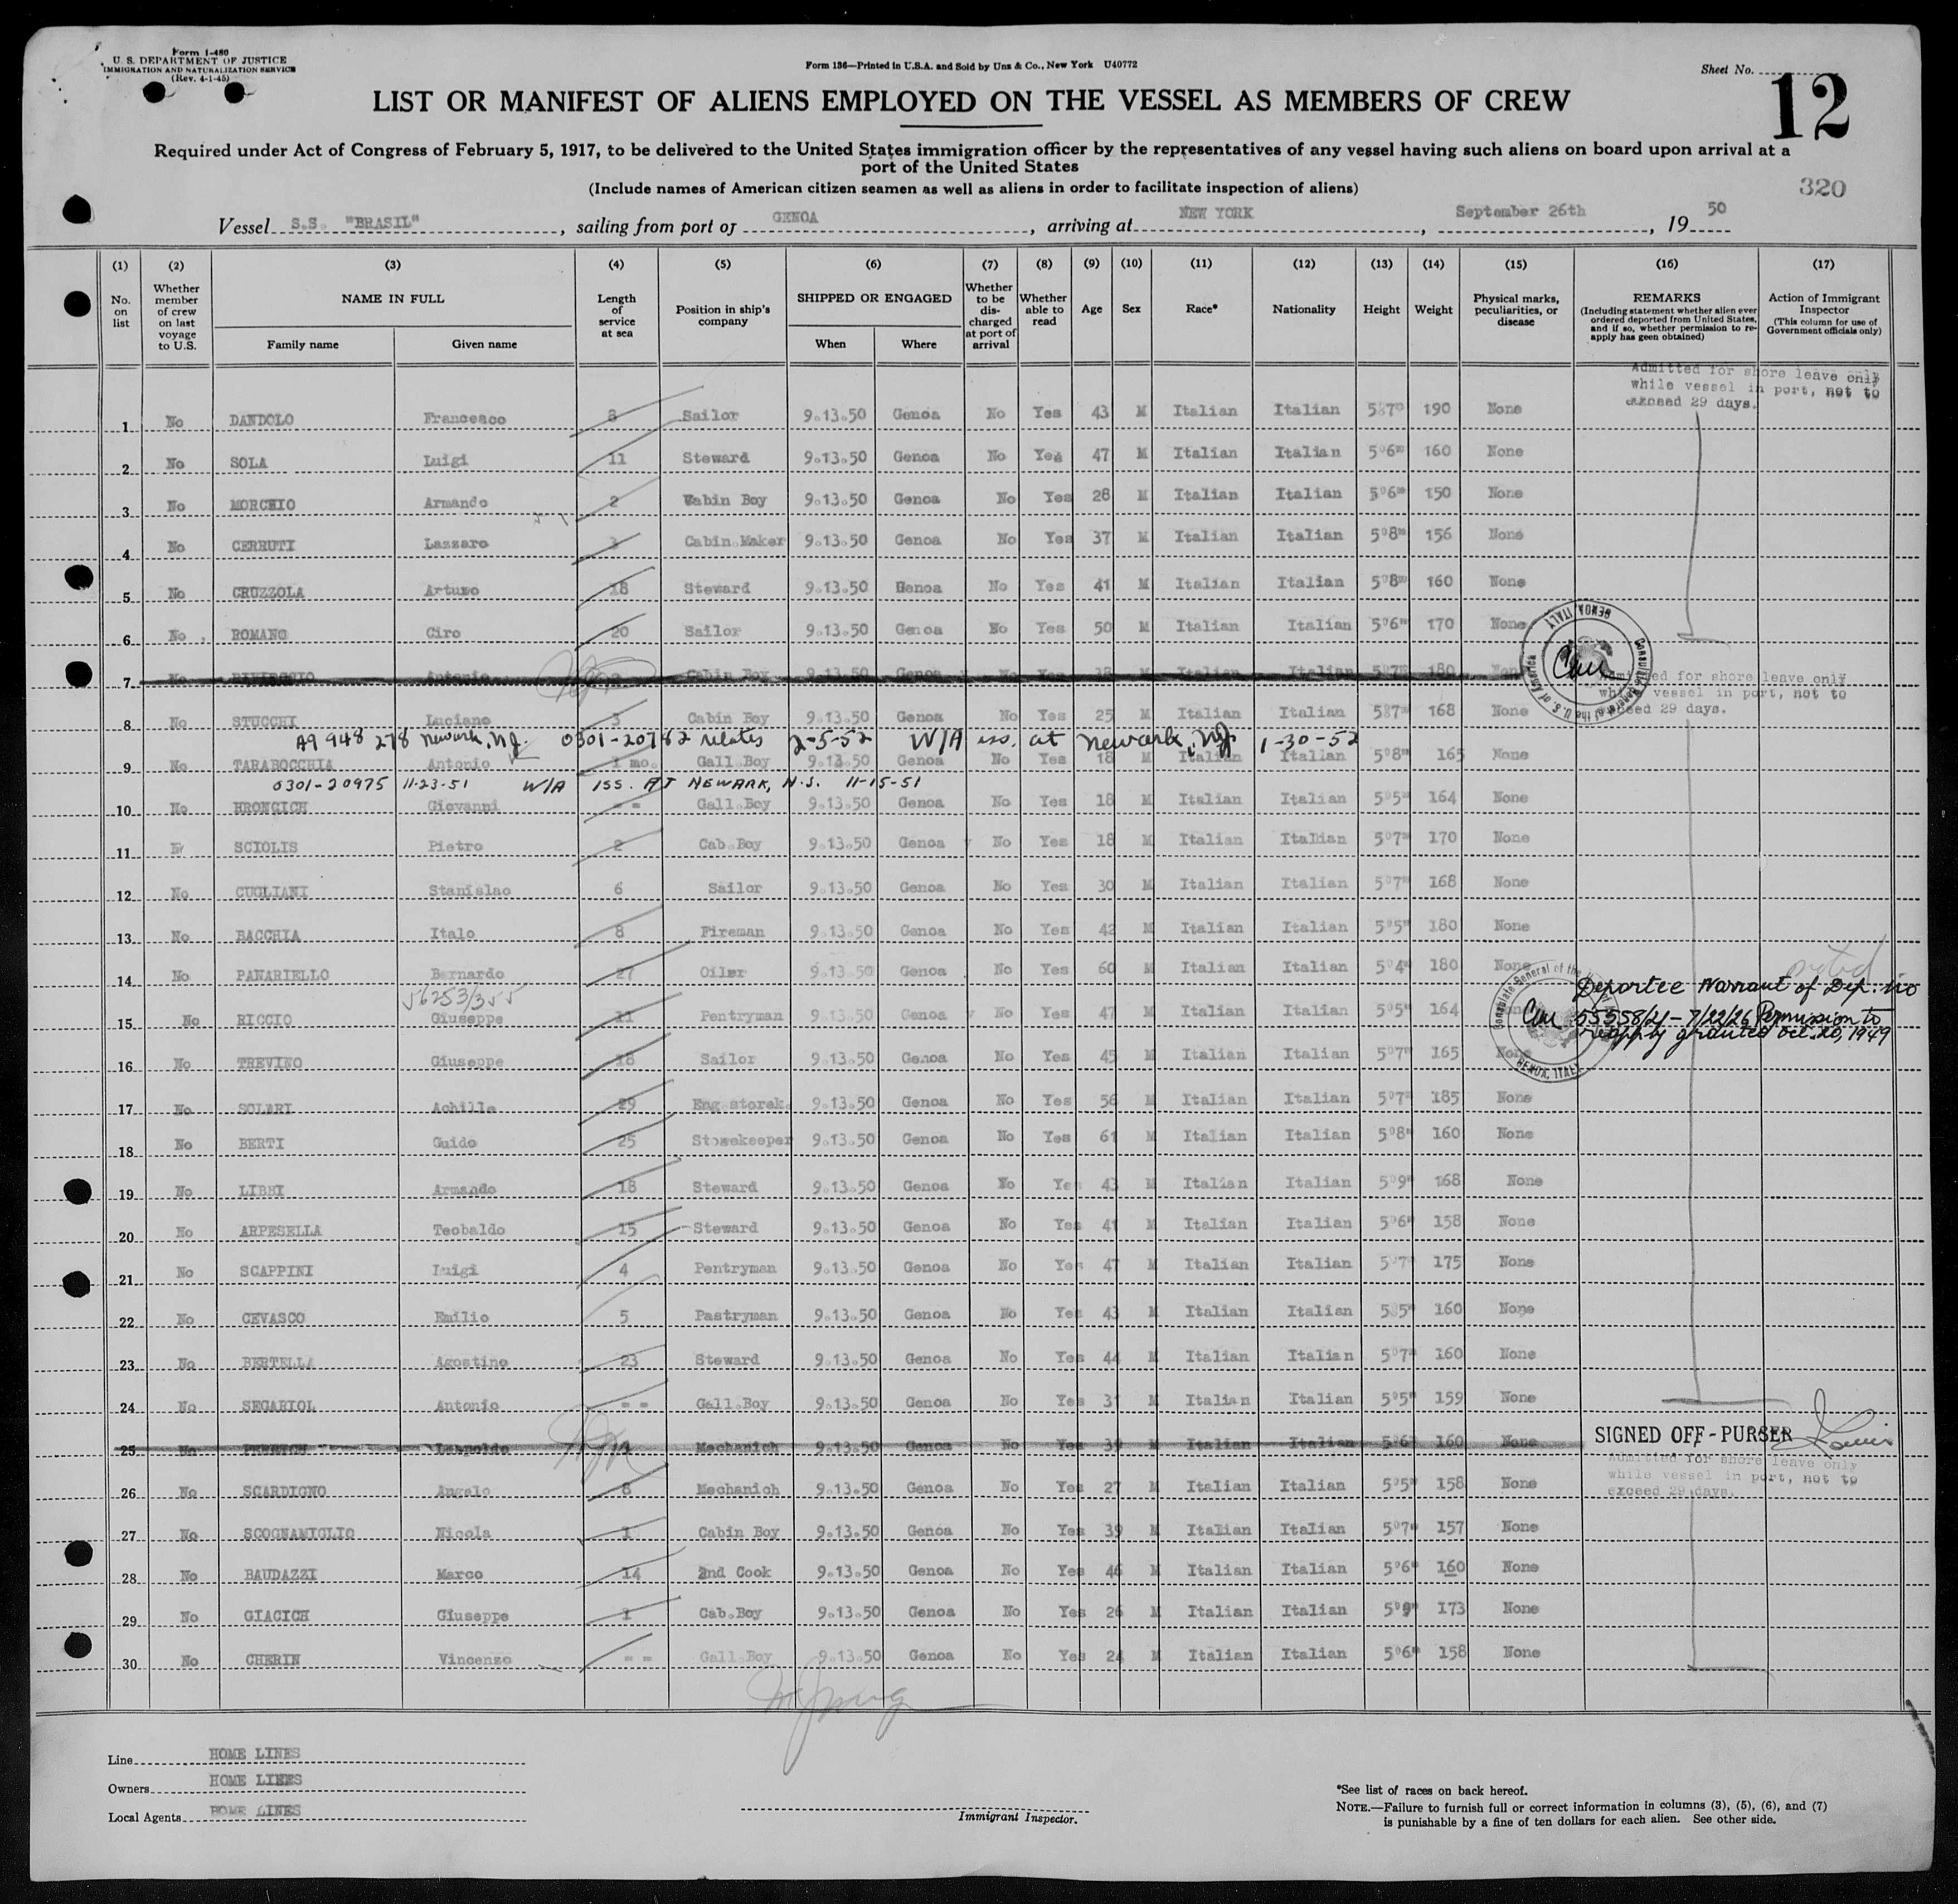 Form I-480
U. S. DEPARTMENT OF JUSTICE
IMMIGRATION AND NATURALIZATION SERVICE
(Rev. 4-1-45)
Form 136—Printed in U.S.A. and Sold by Unz & Co., New York U40772
Sheet No.
12
LIST OR MANIFEST OF ALIENS EMPLOYED ON THE VESSEL AS MEMBERS OF CREW
Required under Act of Congress of February 5, 1917, to be delivered to the United States immigration officer by the representatives of any vessel having such aliens on board upon arrival at a
port of the United States
(Include names of American citizen seamen as well as aliens in order to facilitate inspection of aliens)
320
Vessel S.S. "BRASIL", sailing from port of GENOA, arriving at NEW YORK, September 26th, 19 50
(1) (2) (3) (4) (5) (6) (7) (8) (9) (10) (11) (12) (13) (14) (15) (16) (17)
No. on list
Whether member of crew on last voyage to U.S.
NAME IN FULL
Family name Given name
Length of service at sea
Position in ship's company
SHIPPED OR ENGAGED
When Where
Whether to be discharged at port of arrival
Whether able to read
Age
Sex
Race*
Nationality
Height
Weight
Physical marks, peculiarities, or disease
REMARKS
(Including statement whether alien ever ordered deported from United States, and if so, whether permission to re-apply has geen obtained)
Action of Immigrant Inspector
(This column for use of Government officials only)
Admitted for shore leave only
while vessel in port, not to
exceed 29 days.
1 No DANDOLO Francesco 8 Sailor 9.13.50 Genoa No Yes 43 M Italian Italian 5°7" 190 None
2 No SOLA Luigi 11 Steward 9.13.50 Genoa No Yes 47 M Italian Italian 5°6" 160 None
3 No MORCHIO Armando 2 Cabin Boy 9.13.50 Genoa No Yes 28 M Italian Italian 5°6" 150 None
4 No CERRUTI Lazzaro 3 Cabin.Maker 9.13.50 Genoa No Yes 37 M Italian Italian 5°8" 156 None
5 No CRUZZOLA Arturo 18 Steward 9.13.50 Genoa No Yes 41 M Italian Italian 5°8" 160 None
6 No ROMANO Ciro 20 Sailor 9.13.50 Genoa No Yes 50 M Italian Italian 5°6" 170 None
7 No Antonio Cabin Boy 9.13.50 Genoa No Yes Italian Italian 5°7" 180 None
Consulate General of the U. S. of America GENOA, ITALY
Admitted for shore leave only
while vessel in port, not to
exceed 29 days.
8 No STUCCHI Luciano 3 Cabin Boy 9.13.50 Genoa No Yes 25 M Italian Italian 5°7" 168 None
A9 948 278 Newark, N.J. 0301-20782 relates 2-5-52 W/A iss. at Newark, NJ 1-30-52
9 No TARABOCCHIA Antonio 1 mo. Gall Boy 9.13.50 Genoa No Yes 18 M Italian Italian 5°8" 165 None
0301-20975 11-23-51 W/A ISS. AT NEWARK, N.J. 11-15-51
10 No HRONGICH Giovanni = = Gall.Boy 9.13.50 Genoa No Yes 18 M Italian Italian 5°5" 164 None
11 SCIOLIS Pietro 2 Cab.Boy 9.13.50 Genoa No Yes 18 M Italian Italian 5°7" 170 None
12 No CUGLIANI Stanislao 6 Sailor 9.13.50 Genoa No Yes 30 M Italian Italian 5°7" 168 None
13 No BACCHIA Italo 8 Fireman 9.13.50 Genoa No Yes 42 M Italian Italian 5°5" 180 None
14 No PANARIELLO Bernardo 27 Oiler 9.13.50 Genoa No Yes 60 M Italian Italian 5°4" 180 None
56253/355
15 No RICCIO Giuseppe 11 Pentryman 9.13.50 Genoa No Yes 47 M Italian Italian 5°5" 164 None
Deportee Warrant of Dep. no
55558/21 - 7/22/26 Permission to
reapply granted Dec. 20, 1949
Consulate General of the GENOA, ITALY
16 No TREVINO Giuseppe 18 Sailor 9.13.50 Genoa No Yes 45 M Italian Italian 5°7" 165 None
17 No SOLARI Achille 29 Eng storek. 9.13.50 Genoa No Yes 56 M Italian Italian 5°7" 185 None
18 No BERTI Guido 25 Storekeeper 9.13.50 Genoa No Yes 61 M Italian Italian 5°8" 160 None
19 No LIBBI Armando 18 Steward 9.13.50 Genoa No Yes 43 M Italian Italian 5°9" 168 None
20 No ARPESELLA Teobaldo 15 Steward 9.13.50 Genoa No Yes 41 M Italian Italian 5°6" 158 None
21 No SCAPPINI Luigi 4 Pentryman 9.13.50 Genoa No Yes 47 M Italian Italian 5°7" 175 None
22 No CEVASCO Emilio 5 Pastryman 9.13.50 Genoa No Yes 43 M Italian Italian 5°5" 160 None
23 No BERTELLA Agostino 23 Steward 9.13.50 Genoa No Yes 44 M Italian Italian 5°7" 160 None
24 No SEGARIOL Antonio = = Gall.Boy 9.13.50 Genoa No Yes 31 M Italian Italian 5°5" 159 None
25 No Leopoldo Mechanich 9.13.50 Genoa No Yes 39 M Italian Italian 5°6" 160 None
SIGNED OFF - PURSER
Admitted for shore leave only
while vessel in port, not to
exceed 29 days.
26 No SCARDIGNO Angelo 8 Mechanich 9.13.50 Genoa No Yes 27 M Italian Italian 5°5" 158 None
27 No SCOGNAMIGLIO Nicola 1 Cabin Boy 9.13.50 Genoa No Yes 39 M Italian Italian 5°7" 157 None
28 No BAUDAZZI Marco 14 2nd Cook 9.13.50 Genoa No Yes 46 M Italian Italian 5°6" 160 None
29 No GIACICH Giuseppe 1 Cab.Boy 9.13.50 Genoa No Yes 26 M Italian Italian 5°9" 173 None
30 No CHERIN Vincenzo = = Gall.Boy 9.13.50 Genoa No Yes 24 M Italian Italian 5°6" 158 None
Line HOME LINES
Owners HOME LINES
Local Agents HOME LINES
Immigrant Inspector.
*See list of races on back hereof.
NOTE.—Failure to furnish full or correct information in columns (3), (5), (6), and (7)
is punishable by a fine of ten dollars for each alien. See other side.